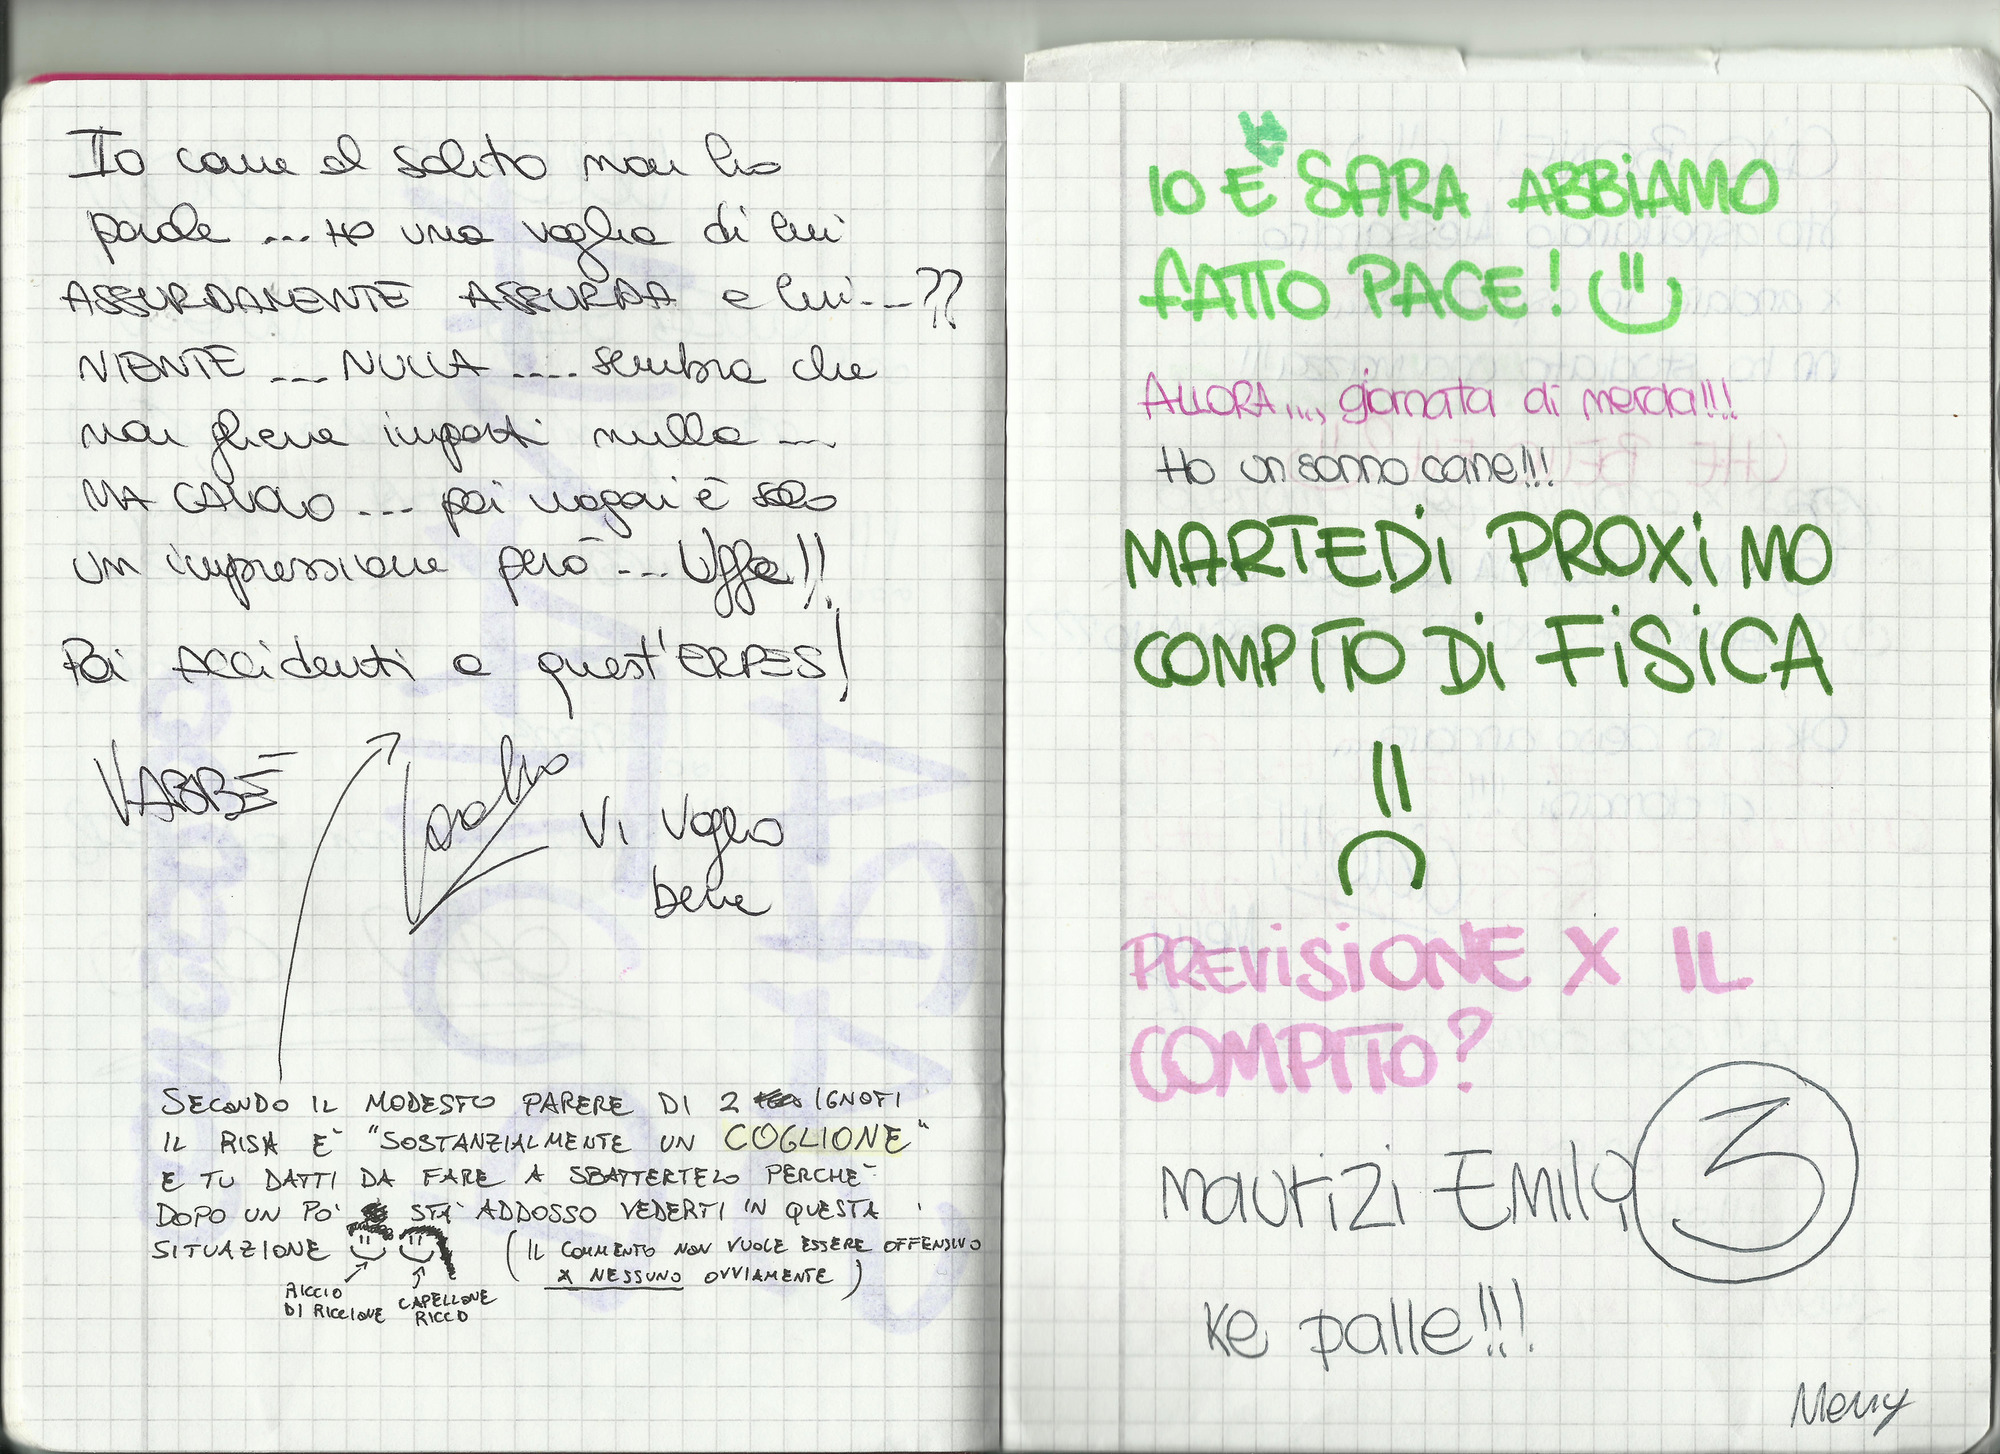 Io come al solito non ho
parole ... Ho una voglia di lui
ASSURDAMENTE ASSURDA e lui ...??
NIENTE ... NULLA .... sembra che
non gliene importi nulla ...
MA CAVOLO ... poi magari è solo
un impressione però ... Uffa!!
Poi Accidenti a quest'ERPES!
VABBÈ
Vi voglio
bene
SECONDO IL MODESTO PARERE DI 2 IGNOTI
IL RISA E' "SOSTANZIALMENTE UN COGLIONE"
E TU DATTI DA FARE A SBATTERTELO PERCHE'
DOPO UN PO' STA' ADDOSSO VEDERTI IN QUESTA
SITUAZIONE (IL COMMENTO NON VUOLE ESSERE OFFENSIVO
X NESSUNO OVVIAMENTE)
RICCIO
DI RICCIONE
CAPELLONE
RICCO
IO E SARA ABBIAMO
FATTO PACE!
ALLORA..., giornata di merda!!!
Ho un sonno cane!!!
MARTEDI PROXIMO
COMPITO DI FISICA
PREVISIONE X IL
COMPITO?
Maurizi Emily 3
Ke palle!!!
Merry